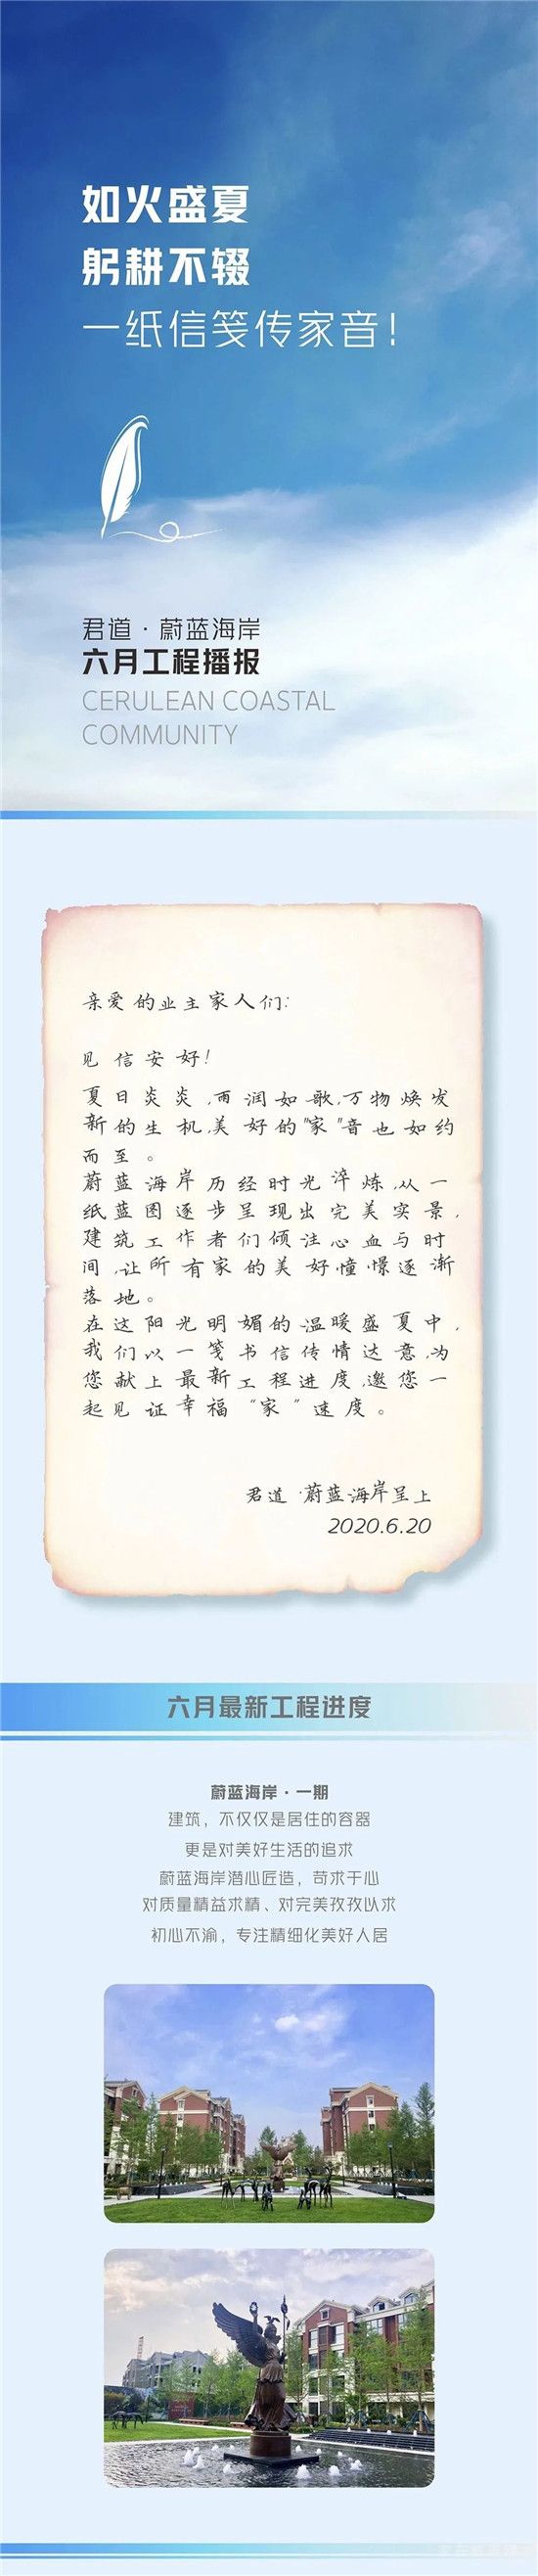 如火盛夏
躬耕不辍
一纸信笺传家音！
君道·蔚蓝海岸
六月工程播报
CERULEAN COASTAL
COMMUNITY
亲爱的业主家人们：
见信安好！
夏日炎炎，雨润如歌，万物焕发
新的生机，美好的"家"音也如约
而至。
蔚蓝海岸历经时光淬炼，从一
纸蓝图逐步呈现出完美实景，
建筑工作者们倾注心血与时
间，让所有家的美好憧憬逐渐
落地。
在这阳光明媚的温暖盛夏中，
我们以一笺书信传情达意，为
您献上最新工程进度，邀您一
起见证幸福"家"速度。
君道·蔚蓝海岸呈上
2020.6.20
六月最新工程进度
蔚蓝海岸·一期
建筑，不仅仅是居住的容器
更是对美好生活的追求
蔚蓝海岸潜心匠造，苛求于心
对质量精益求精、对完美孜孜以求
初心不渝，专注精细化美好人居